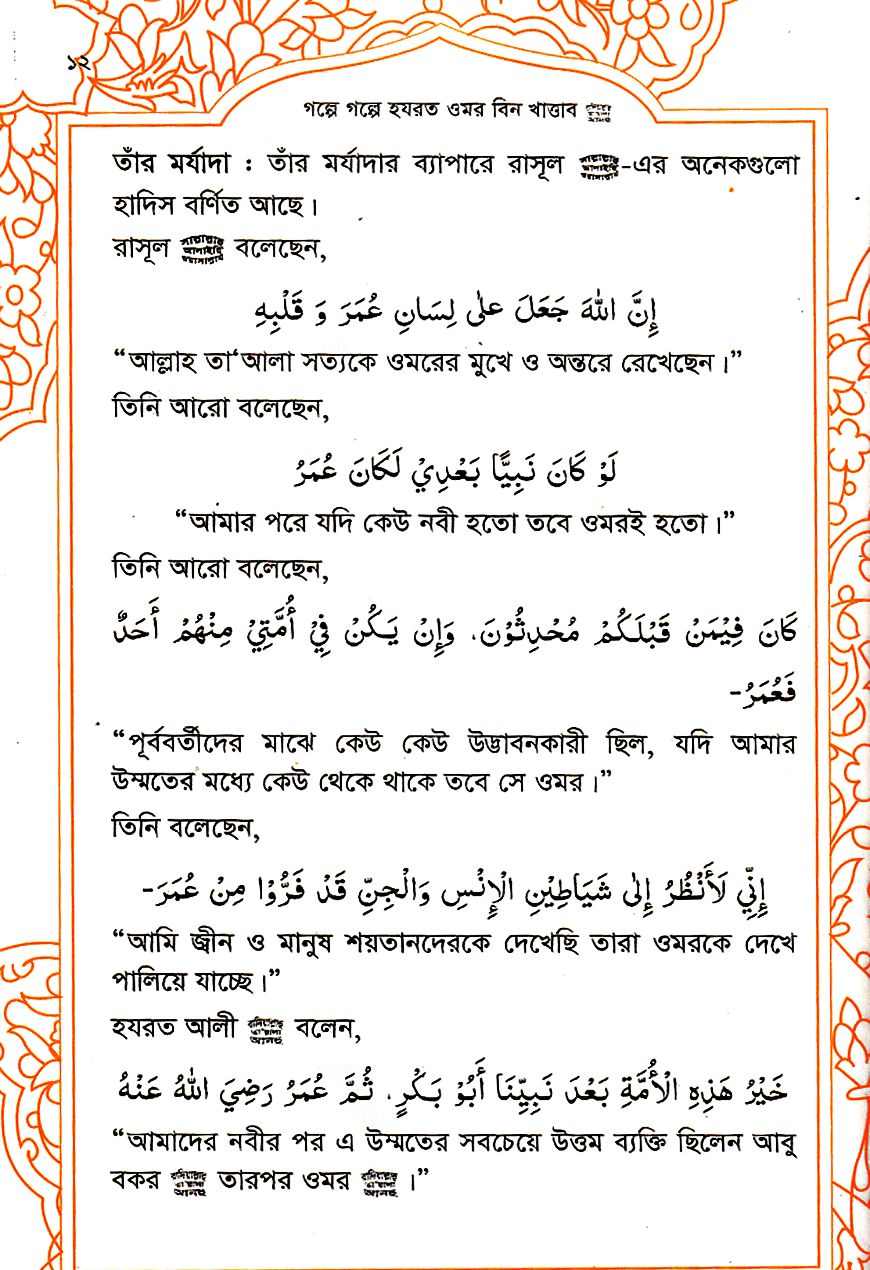 ১২
গল্পে গল্পে হযরত ওমর বিন খাত্তাব
তাঁর মর্যাদা : তাঁর মর্যাদার ব্যাপারে রাসূল -এর অনেকগুলো
হাদিস বর্ণিত আছে।
রাসূল বলেছেন,
إِنَّ اللهَ جَعَلَ عَلٰى لِسَانِ عُمَرَ وَ قَلْبِهِ
“আল্লাহ তা‘আলা সত্যকে ওমরের মুখে ও অন্তরে রেখেছেন।”
তিনি আরো বলেছেন,
لَوْ كَانَ نَبِيًّا بَعْدِيْ لَكَانَ عُمَرُ
“আমার পরে যদি কেউ নবী হতো তবে ওমরই হতো।”
তিনি আরো বলেছেন,
كَانَ فِيْمَنْ قَبْلَكُمْ مُحْدِثُوْنَ. وَإِنْ يَكُنْ فِيْ أُمَّتِيْ مِنْهُمْ أَحَدٌ
فَعُمَرُ-
“পূর্ববর্তীদের মাঝে কেউ কেউ উদ্ভাবনকারী ছিল, যদি আমার
উম্মতের মধ্যে কেউ থেকে থাকে তবে সে ওমর।”
তিনি বলেছেন,
إِنِّي لَأَنْظُرُ إِلٰى شَيَاطِيْنِ الْإِنْسِ وَالْجِنِّ قَدْ فَرُّوْا مِنْ عُمَرَ-
“আমি জ্বীন ও মানুষ শয়তানদেরকে দেখেছি তারা ওমরকে দেখে
পালিয়ে যাচ্ছে।”
হযরত আলী বলেন,
خَيْرُ هَذِهِ الْأُمَّةِ بَعْدَ نَبِيِّنَا أَبُوْ بَكْرٍ. ثُمَّ عُمَرُ رَضِيَ اللهُ عَنْهُ
“আমাদের নবীর পর এ উম্মতের সবচেয়ে উত্তম ব্যক্তি ছিলেন আবু
বকর তারপর ওমর ।”